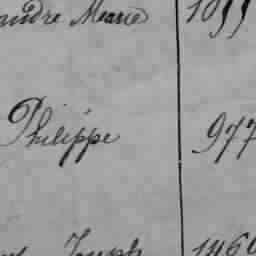 andre Marie 1099
Philippe 977
Joseph 1460